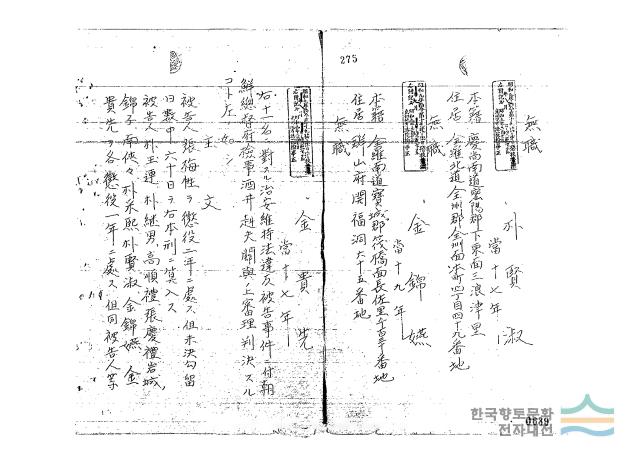 275
無職
朴賢淑
當十七年
本籍 慶尚南道密陽郡下東面三浪津里
住居 全羅北道全州郡全州面本町四丁目四十九番地
無職
金錦嬿
當十九年
本籍 全羅南道寶城郡筏橋面長佐里
住居 群山府開福洞六十五番地
無職
金貴先
當十七年
右十一名ニ對スル治安維持法違反被告事件ニ付朝
鮮總督府檢事酒井赳夫關與ノ上審理判決スル
コト左ノ如シ
主文
被告人張梅性ヲ懲役二年ニ處ス但未決勾留
日數中六十日ヲ右本刑ニ算入ス
被告人朴玉連、朴繼男、高順禮、張慶禮、岩城
錦子、南俠々、朴采熙、朴賢淑、金錦嬿、金
貴先ヲ各懲役一年ニ處ス但同被告人等
0689
한국향토문화
전자대전